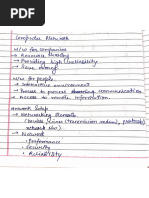 Computer Network
N/w for companies
→ Resource Sharing
→ Providing high reliability
→ Save money
N/w for people
→ Interactive environment
→ Person to person communication
→ Access to remote information.
Network
→ Networking Elements
(Devices, (transmission medium), protocols,
network s/w)
→ Network
• performance
• Security
• Reliability